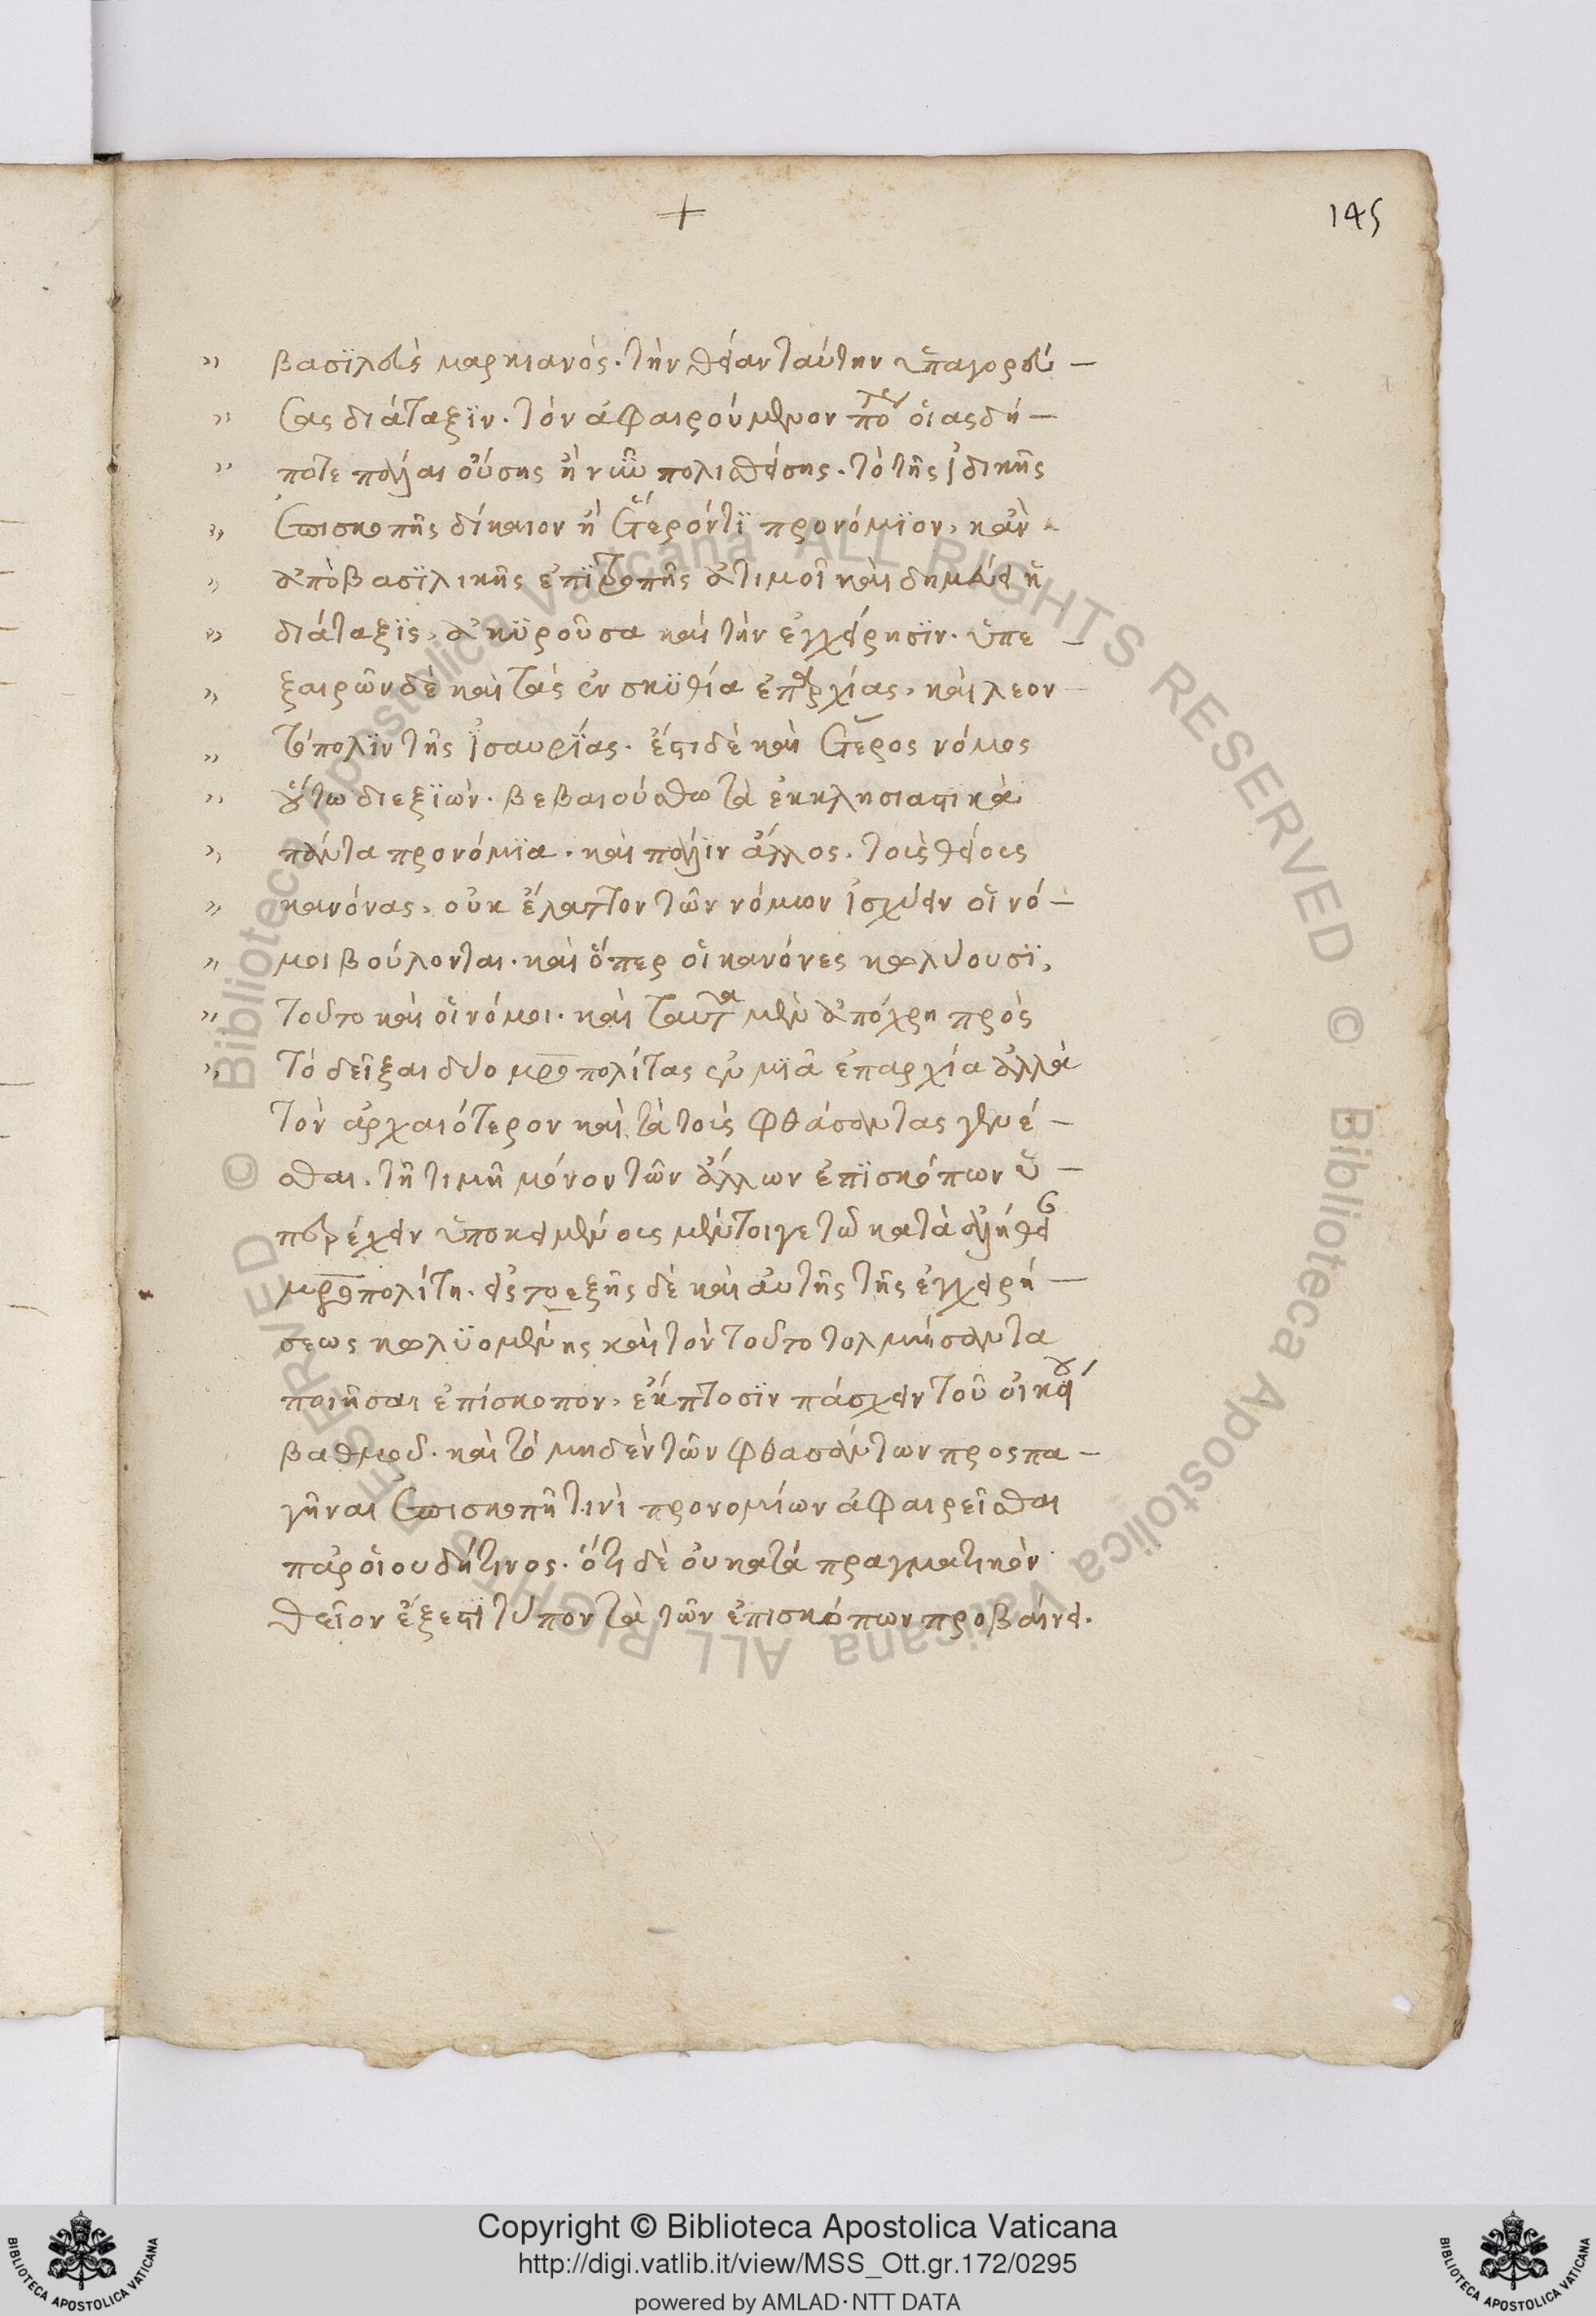 +
145
» βασϊλεὺς μαρκιανός. τὴν θείαν ταύτην ὑπαγορεύ –
» σας διάταξϊν. τὸν ἀφαιρούμενον ποτὲ οἱασδή –
» ποτε πάλαι οὔσης ἢ νῦν πολισθείσης. τὸ τῆς ἰδικῆς
» ἐπισκοπῆς δίκαιον ἢ ἕτερόν τϊ προνόμϊον, κἂν
» ἀπὸ βασϊλικῆς ἐπϊτροπῆς ἀτιμοῖ καὶ δημεύει ἡ
» διάταξϊς, ἀκϋροῦσα καὶ τὴν ἐγχείρησϊν. ὑπε –
» ξαιρῶν δὲ καὶ τὰς ἐν σκϋθία ἐπαρχίας, καὶ λεον –
» τόπολϊν τῆς ἰσαυρΐας. ἔστι δὲ καὶ ἕτερος νόμος
» οὕτω διεξϊών. βεβαιούσθω τὰ ἐκκλησιαστικὰ
» πάντα προνόμϊα. καὶ πάλιν ἄλλος. τοὺς θείους
» κανόνας, οὐκ ἔλαττον τῶν νόμων ἰσχύειν οἱ νό –
» μοι βούλονται. καὶ ὅπερ οἱ κανόνες κωλύουσϊ,
» τοῦτο καὶ οἱ νόμοι. καὶ ταῦτα μὲν ἀπόχρη πρὸς
» τὸ δεῖξαι δύο μροπολίτας ἐν μϊᾶ ἐπαρχία ἀλλὰ
τὸν ἀρχαιότερον κατὰ τοὺς φθάσαντας γενέ –
σθαι. τῆ τιμῆ μόνον τῶν ἄλλων ἐπϊσκόπων ὑ –
περέχειν ὑποκειμένους μέντοιγε τῶ κατὰ ἀλήθειαν
μροπολίτη. εἰς τὸ ἑξῆς δὲ καὶ αὐτῆς τῆς ἐγχειρή –
σεως κωλϋομένης καὶ τὸν τοῦτο τολμήσαντα
ποιῆσαι ἐπίσκοπον, ἔκπτοσϊν πάσχειν τοῦ οἰκείου
βαθμοῦ. καὶ τὸ μηδὲν τῶν φθασάντων προςπα –
γῆναι ἐπισκοπῆ τινὶ προνομίων ἀφαιρεῖσθαι
παρ οἱουδήτινος. ὅτι δὲ οὐ κατὰ πραγματικὸν
θεῖον ἔξεστϊ τύπον τὰ τῶν ἐπισκόπων προβαίνει.
Copyright © Biblioteca Apostolica Vaticana
http://digi.vatlib.it/view/MSS_Ott.gr.172/0295
powered by AMLAD·NTT DATA
BIBLIOTECA APOSTOLICA VATICANA
BIBLIOTECA APOSTOLICA VATICANA
© Biblioteca Apostolica Vaticana ALL RIGHTS RESERVED © Biblioteca Apostolica Vaticana ALL RIGHTS RESERVED